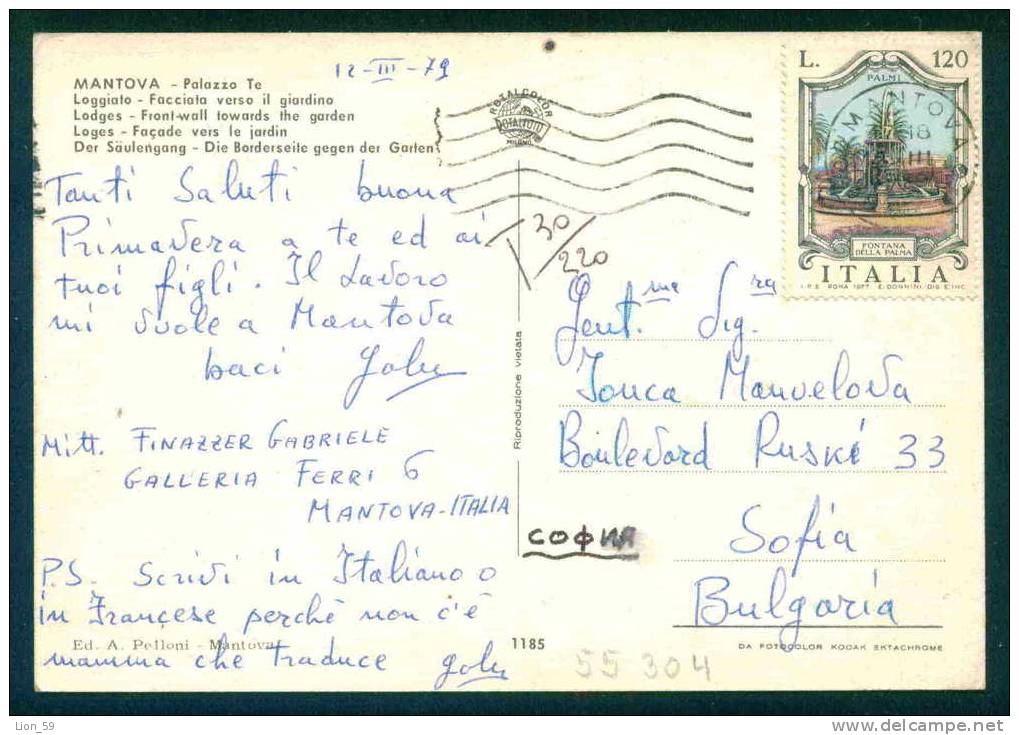 12-III-79
MANTOVA - Palazzo Te
Loggiato - Facciata verso il giardino
Lodges - Front-wall towards the garden
Loges - Façade vers le jardin
Der Säulengang - Die Borderseite gegen der Garten
Tanti Saluti buona
Primavera a te ed ai
tuoi figli. Il Lavoro
mi vuole a Mantova
baci Gabry
Mitt. FINAZZER GABRIELE
GALLERIA FERRI 6
MANTOVA-ITALIA
P.S. Scrivi in Italiano o
in Francese perchè non c'è
mamma che traduce Gabry
Ed. A. Pelloni - Mantova
ROTALCOLOR
ROTALFOTO
MILANO
T 30/220
Riproduzione vietata
1185
L. 120
PALMI
MANTOVA
18
III
FONTANA
DELLA PALMA
ITALIA
I.P.S. ROMA 1977 E. DONNINI DIS. E INC.
Gent.ma Sig.ra
Jonca Manvelova
Boulevard Ruski 33
Sofia
СОФИЯ
Bulgaria
DA FOTOCOLOR KODAK EKTACHROME
55 304
Lion_59
http://www.delcampe.net